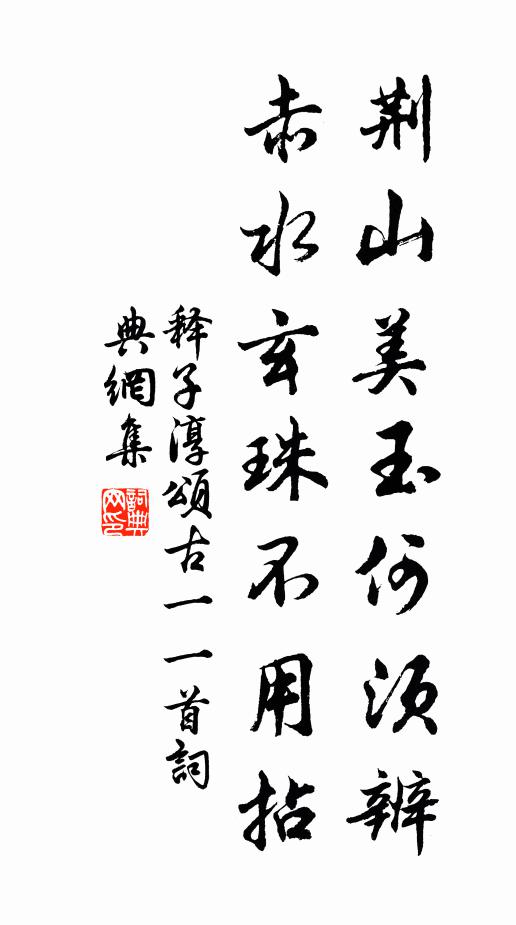 荆山美玉何须辨
赤水玄珠不用拈
释子淳頌古一一首詞
典網集
詞典網印